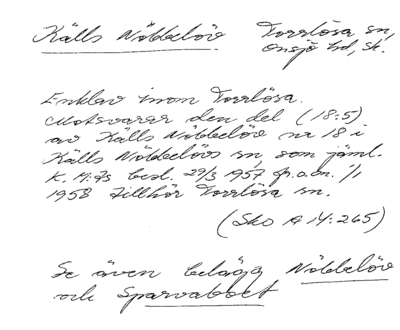 Källs Nöbbelöv Torrlösa sn,
Onsjö hd, Sk.
Enklav inom Torrlösa.
Motsvarar den del (18:5)
av Källs Nöbbelöv nr 18 i
Källs Nöbbelövs sn, som jäml.
K. M:ts besl. 29/3 1957 fr.o.m. 1/1
1958 tillhör Torrlösa sn.
(Sko A 14:265)
Se även belägg Nöbbelöv
och Sparvabbet